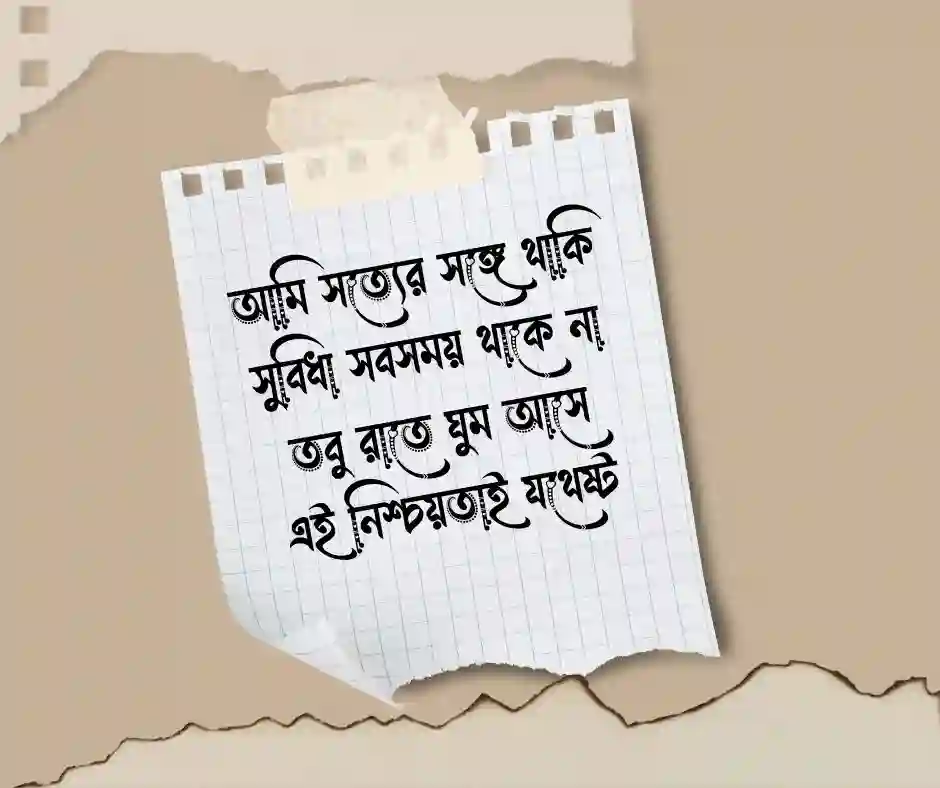 আমি সত্যের সঙ্গে থাকি
সুবিধা সবসময় থাকে না
তবু রাতে ঘুম আসে
এই নিশ্চয়তাই যথেষ্ট